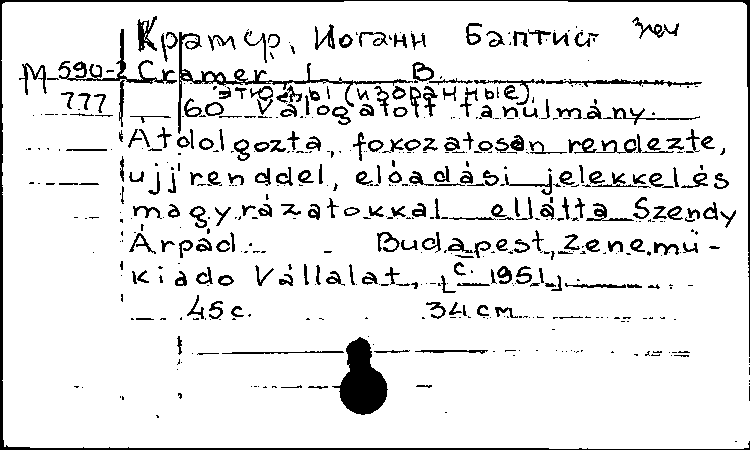 Крамер, Иоганн Баптист
М 590-2 Cramer I. B.
этюды (избранные)
777 60 Válogatott tanulmány.
Átdolgozta, fokozatosan rendezte,
ujjrenddel, előadási jelekkel és
magyrázatokkal ellátta Szendy
Árpád. Budapest, Zenemü-
kiado Vállalat, [c. 1951].
45 с. 34 см